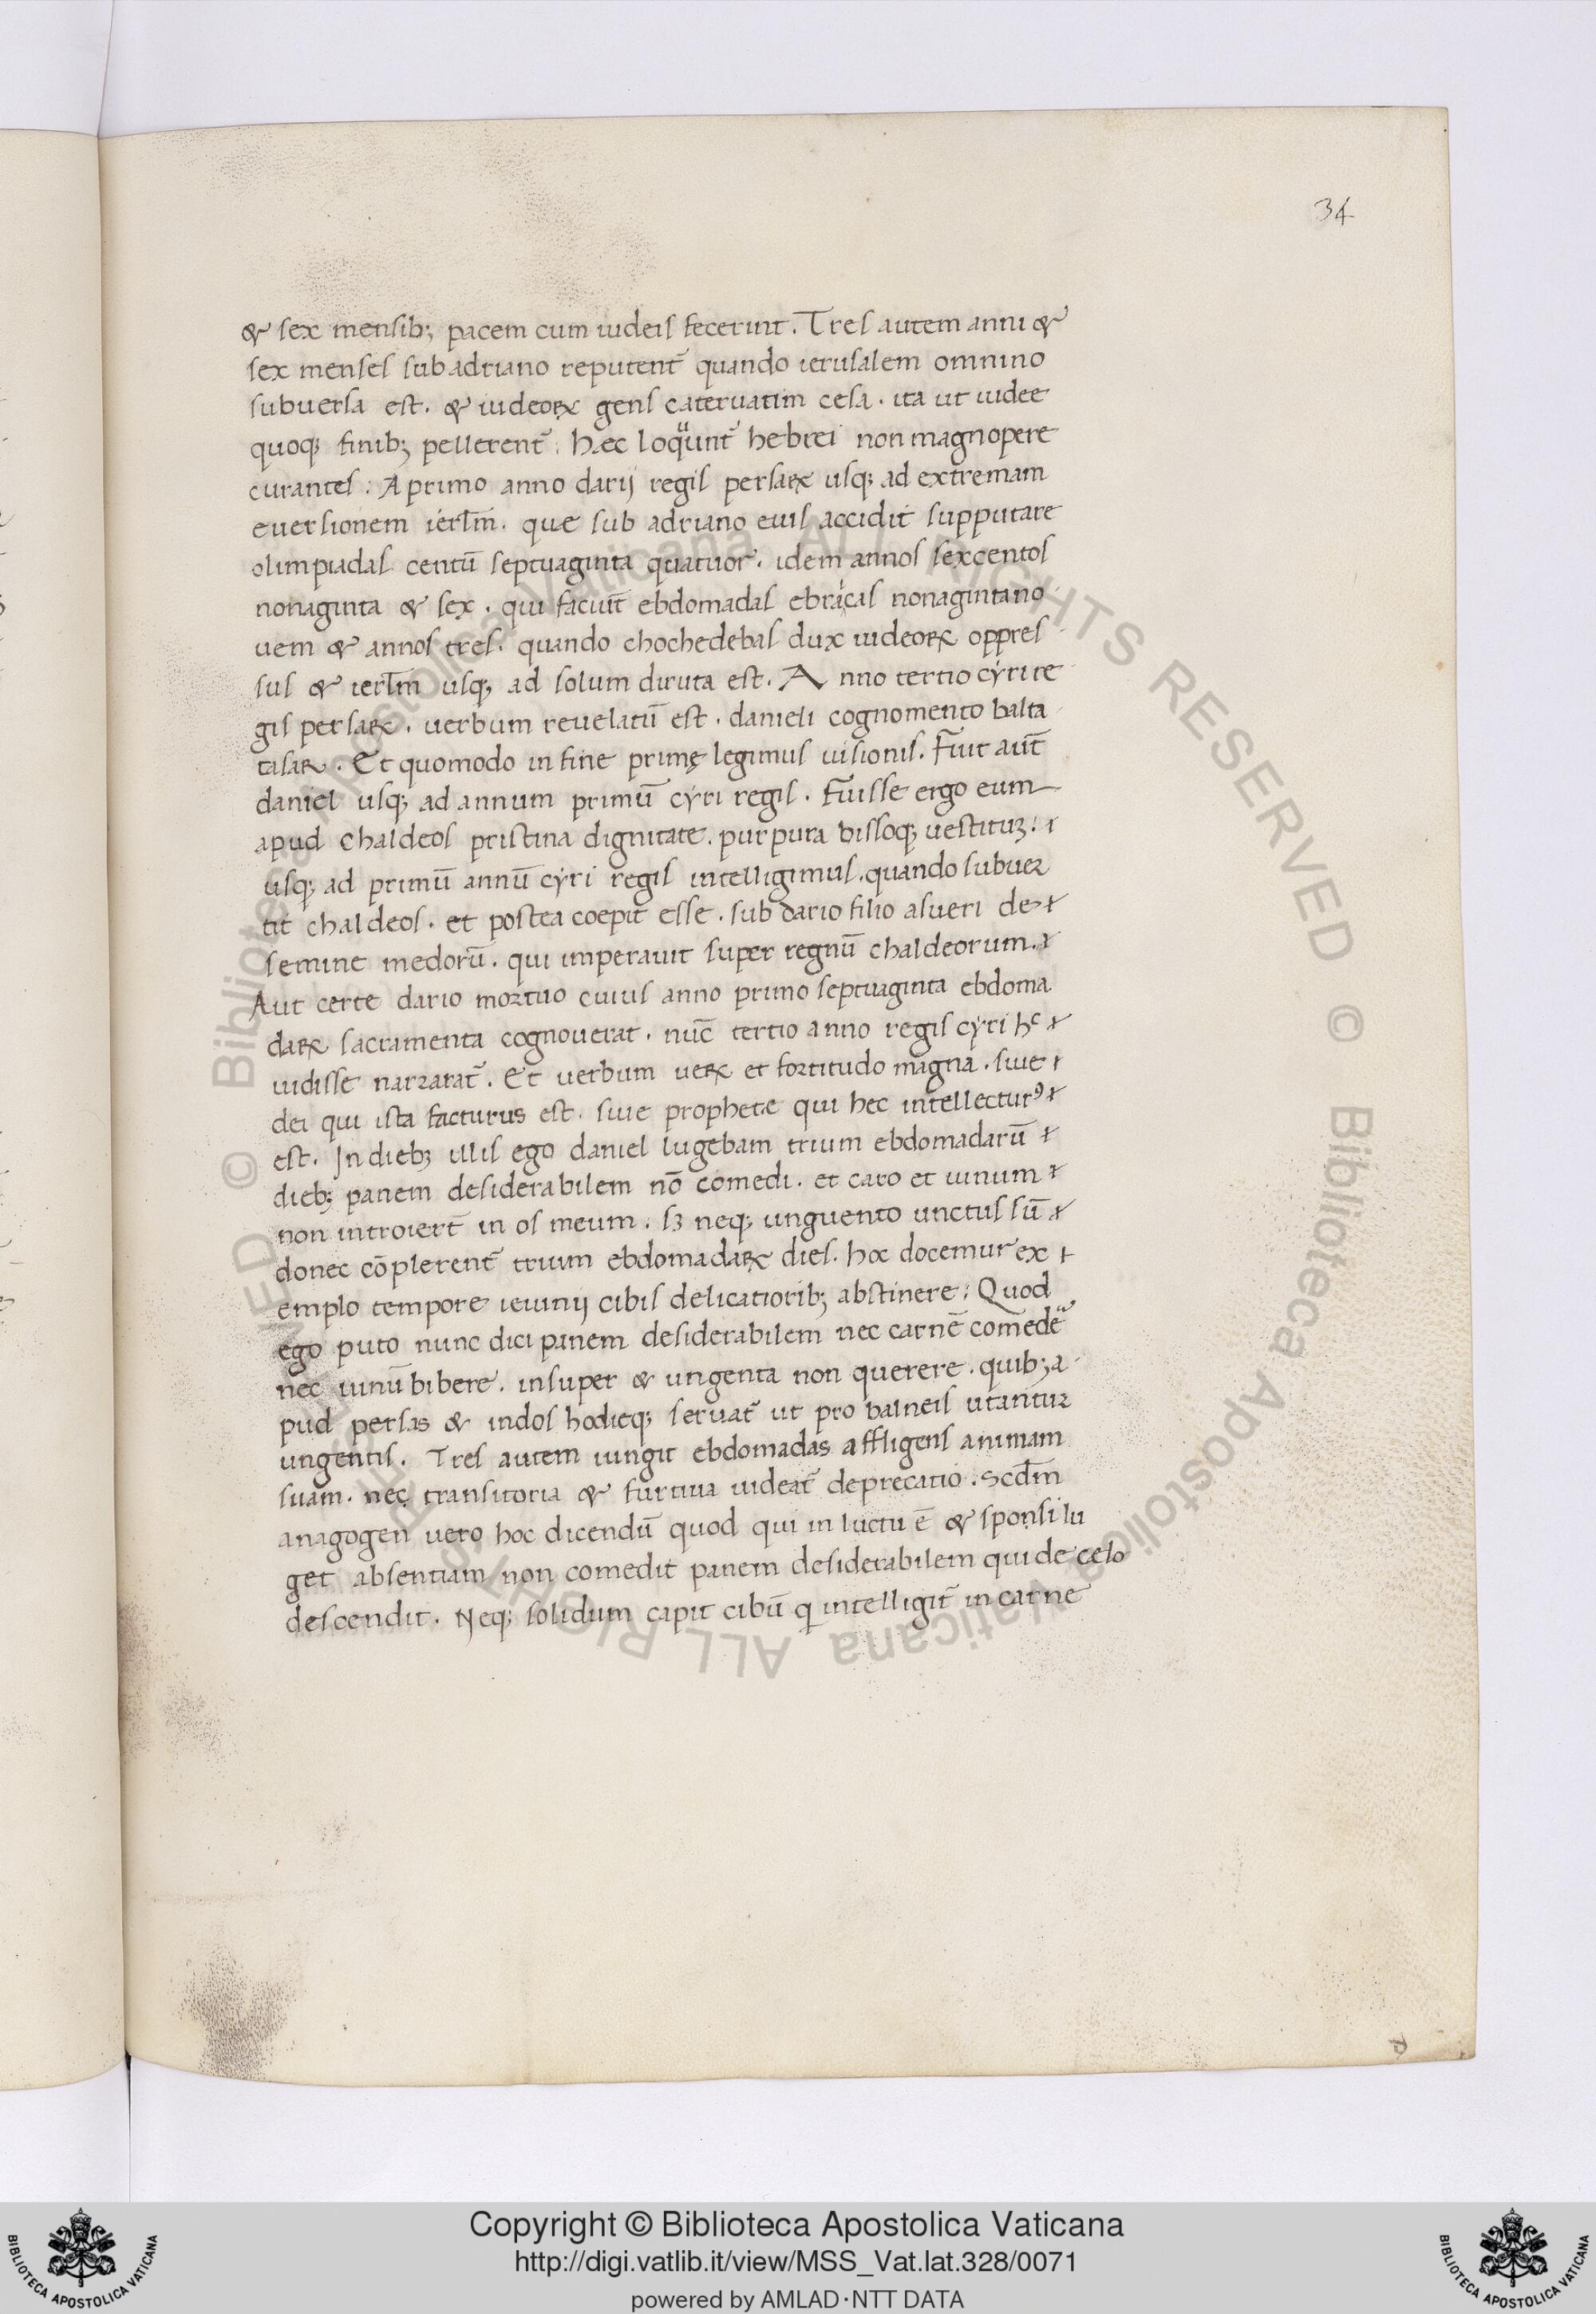 34
& sex mensib; pacem cum iudeis fecerint. Tres autem anni &
sex menses sub adriano reputent̄ quando ierusalem omnino
subuersa est. & iudeoꝝ gens cateruatim cesa. ita ut iudee
quoq; finib; pellerent̄. Hæc loquunt̄ hebrei non magnopere
curantes. A primo anno darij regis persaꝝ usq; ad extremam
euersionem ierl̄m. que sub adriano euis accidit supputare
olimpiadas centū septuaginta quatuor. idem annos sexcentos
nonaginta & sex. qui faciūt ebdomadas ebraicas nonaginta no
uem & annos tres. quando chochedebas dux iudeoꝝ oppres
sus & ierl̄m usq; ad solum diruta est. Anno tertio cyri re
gis persaꝝ. uerbum reuelatū est. danieli cognomento balta
tasar. Et quomodo in fine primę legimus uisionis. Fuit aūt
daniel usq; ad annum primū cyri regis. Fuisse ergo eum
apud chaldeos pristina dignitate. purpura bissoq; uestituʒ.
usq; ad primū annū cyri regis intelligimus. quando subuer
tit chaldeos. et postea coepit esse. sub dario filio asueri de
semine medorū. qui imperauit super regnū chaldeorum.
Aut certe dario mortuo cuius anno primo septuaginta ebdoma
daꝝ sacramenta cognouerat. nūc tertio anno regis cyri hᶜ
uidisse narrarat̄. Et uerbum ueꝝ et fortitudo magna. siue
dei qui ista facturus est. siue prophete qui hec intellectur⁹
est. In dieb; illis ego daniel lugebam trium ebdomadarū
dieb; panem desiderabilem nō comedi. et caro et uinum
non introiert̄ in os meum. sʒ neq; unguento unctus sū
donec cōplerent̄ trium ebdomadaꝝ dies. hoc docemur ex
emplo tempore ieiunij cibis delicatiorib; abstinere. Quod
ego puto nunc dici panem desiderabilem nec carnē comedē
nec uinū bibere. insuper & ungenta non querere. quib; a
pud persas & indos hodieq; seruat̄ ut pro balneis utantur
ungentis. Tres autem iungit ebdomadas affligens animam
suam. nec transitoria & furtiua uideat̄ deprecatio. Scd̄m
anagogen uero hoc dicendū quod qui in luctu ē & sponsi lu
get absentiam non comedit panem desiderabilem qui de celo
descendit. Neq; solidum capit cibū q intelligit̄ in carne
© Biblioteca Apostolica Vaticana ALL RIGHTS RESERVED © Biblioteca Apostolica Vaticana ALL RIGHTS RESERVED
Copyright © Biblioteca Apostolica Vaticana
http://digi.vatlib.it/view/MSS_Vat.lat.328/0071
powered by AMLAD·NTT DATA
BIBLIOTECA APOSTOLICA VATICANA
BIBLIOTECA APOSTOLICA VATICANA